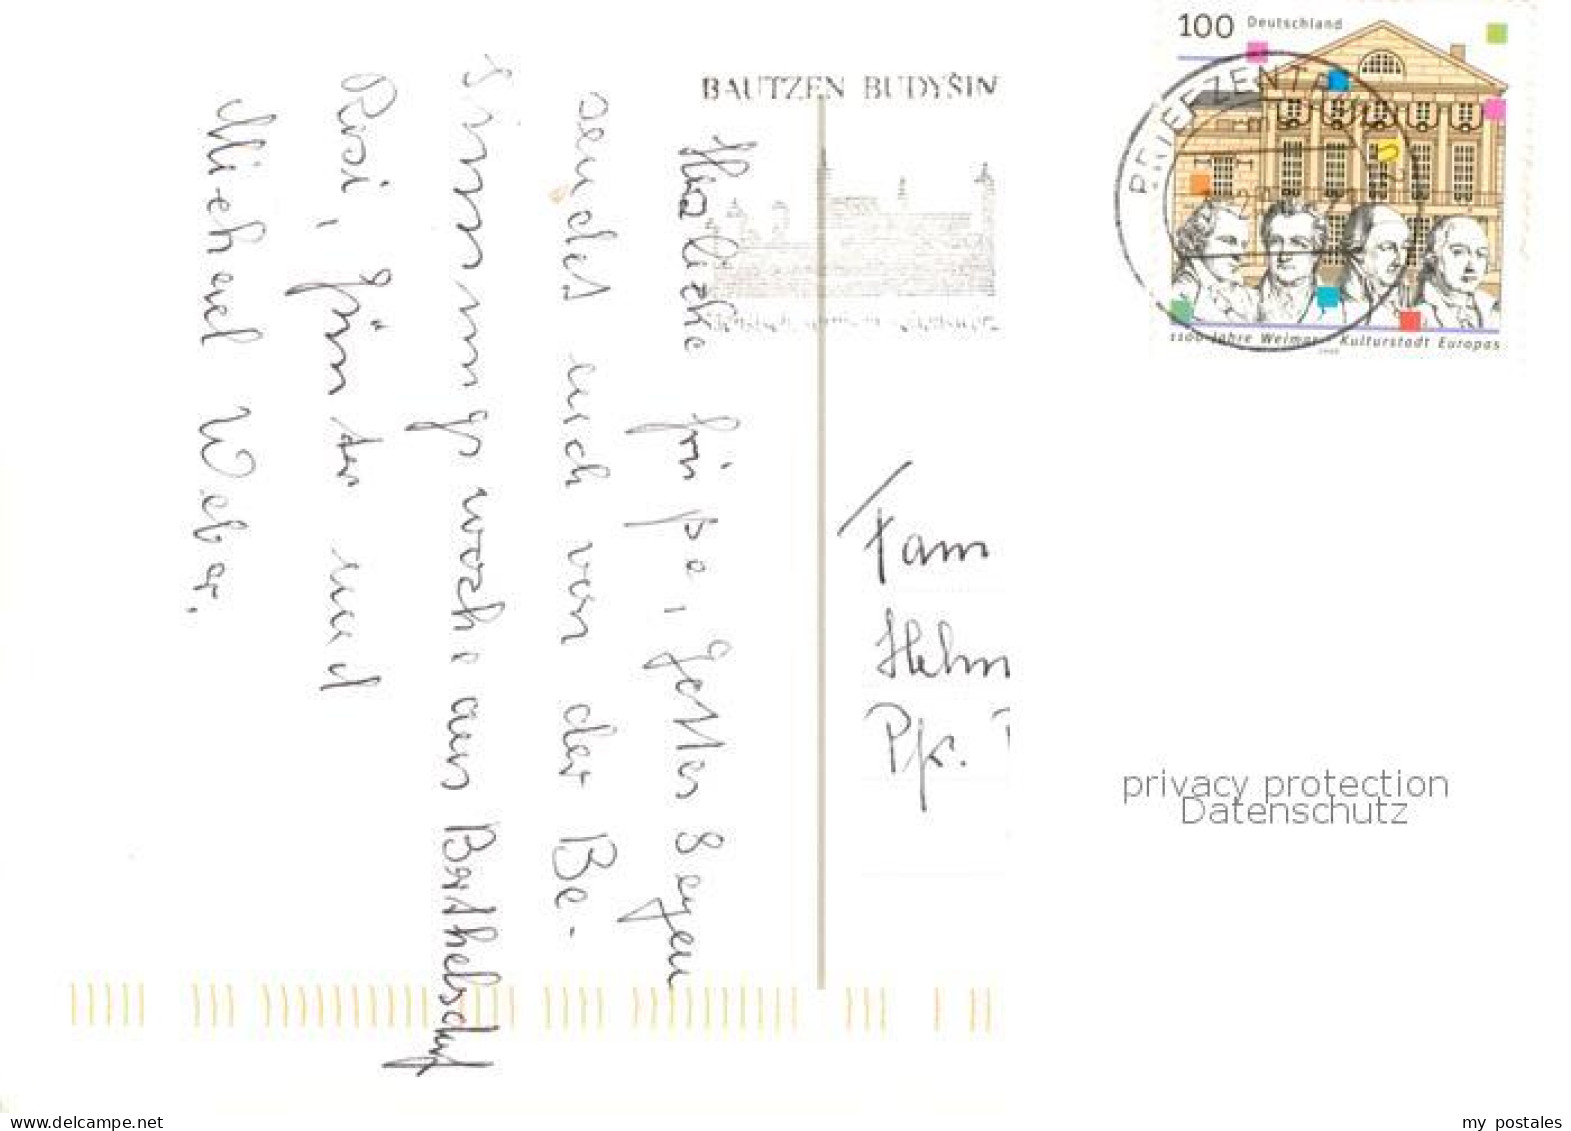 100 Deutschland
1100 Jahre Weimar - Kulturstadt Europas
BRIEFZENTRUM 02
BAUTZEN BUDYŠIN
Herzliche Grüße, Gottes Segen
sendet euch von der Be-
sinnungswoche aus Barthelsdorf
Rosi, Günter und
Michael Weber.
Fam
Helm
Pfr.
privacy protection
Datenschutz
www.delcampe.net
my_postales